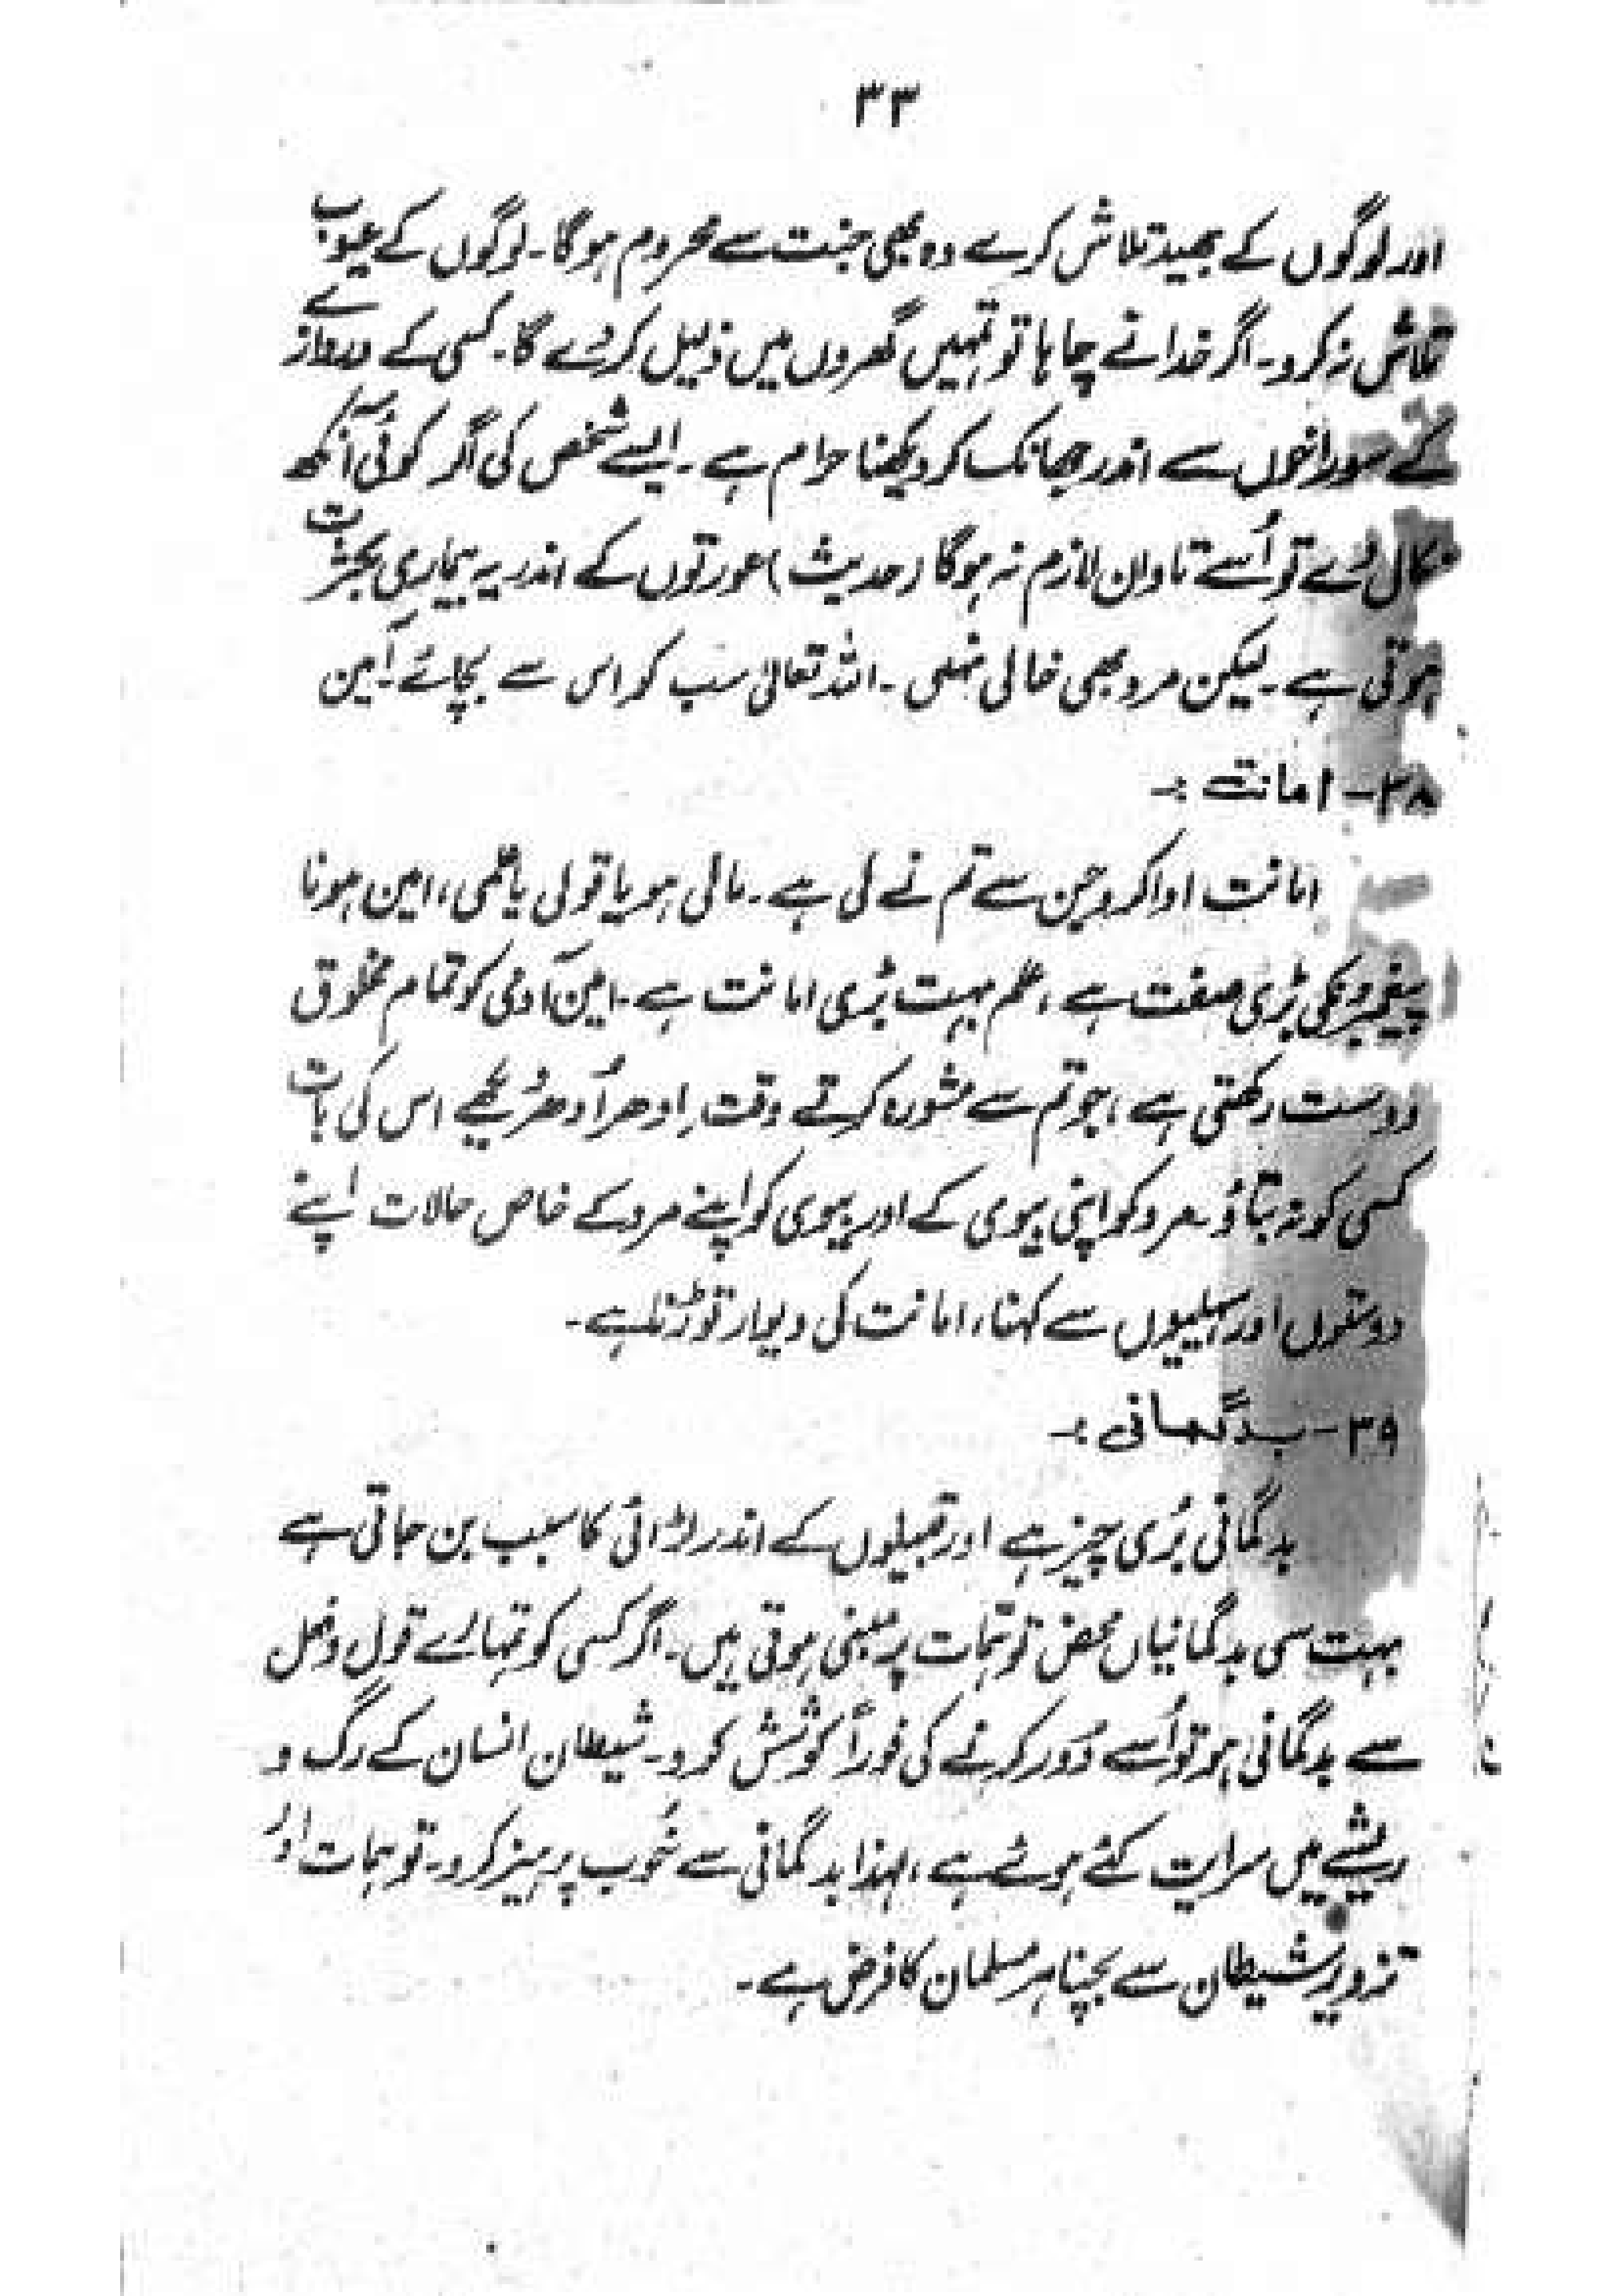 ۳۳
اور لوگوں کے بھید تلاش کرے وہ بھی جنت سے محروم ہوگا۔ لوگوں کے عیوب
تلاش نہ کرو۔ اگر خدا نے چاہا تو تمہیں گھروں میں ذلیل کر دے گا۔ کسی کے دروازے
کے سوراخوں سے اندر جھانک کر دیکھنا حرام ہے۔ ایسے شخص کی اگر کوئی آنکھ
نکال دے تو اُسے تاوان لازم نہ ہوگا (حدیث) عورتوں کے اندر یہ بیماری بکثرت
ہوتی ہے۔ لیکن مرد بھی خالی نہیں۔ اللہ تعالیٰ سب کو اس سے بچائے۔ آمین
۳۸- امانت :-
امانت ادا کرو جن سے تم نے لی ہے۔ مالی ہو یا قولی یا علمی، امین ہونا
پیغمبروں کی بڑی صفت ہے، علم بہت بڑی امانت ہے۔ امین آدمی کو تمام مخلوق
دوست رکھتی ہے، جو تم سے مشورہ کرتے وقت اِدھر اُدھر دیکھے اس کی بات
کسی کو نہ بتاؤ۔ مرد کو اپنی بیوی کے اور بیوی کو اپنے مرد کے خاص حالات اپنے
دوستوں اور سہیلیوں سے کہنا، امانت کی دیوار توڑنا ہے۔
۳۹- بدگمانی :-
بدگمانی بُری چیز ہے اور قبیلوں کے اندر لڑائی کا سبب بن جاتی ہے
بہت سی بدگمانیاں محض توہمات پر مبنی ہوتی ہیں۔ اگر کسی کو تمہارے قول و فعل
سے بدگمانی ہو تو اُسے دُور کرنے کی فوراً کوشش کرو۔ شیطان انسان کے رگ و
ریشے میں سرایت کئے ہوئے ہے، لہذا بدگمانی سے خُوب پرہیز کرو۔ توہمات اور
تزویرِ شیطان سے بچنا ہر مسلمان کا فرض ہے۔